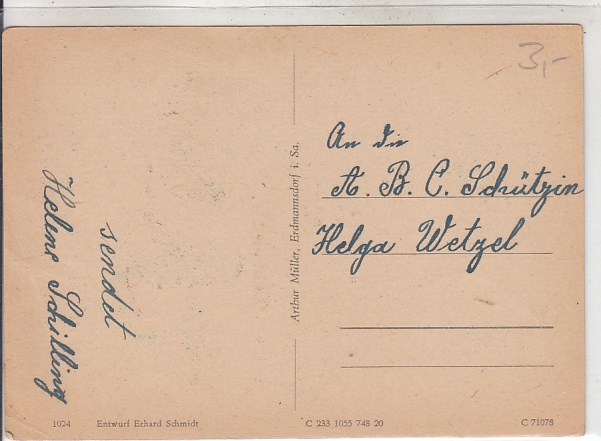 3,-
An die
A. B. C. Schützin
Helga Wetzel
sendet
Helene Schilling
Arthur Müller, Erdmannsdorf i. Sa.
1024 Entwurf Erhard Schmidt C 233 1055 748 20 C 71078